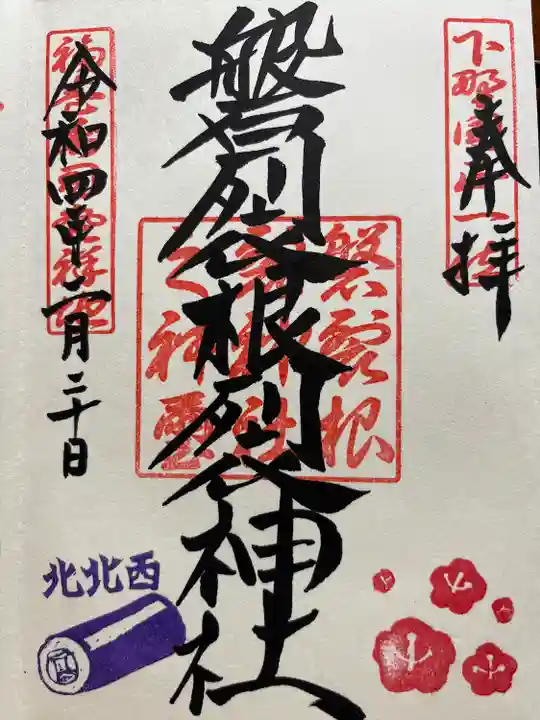 奉拝
下野国
磐裂根裂神社
磐裂根
裂神社
之神璽
令和四年二月二十日
北北西